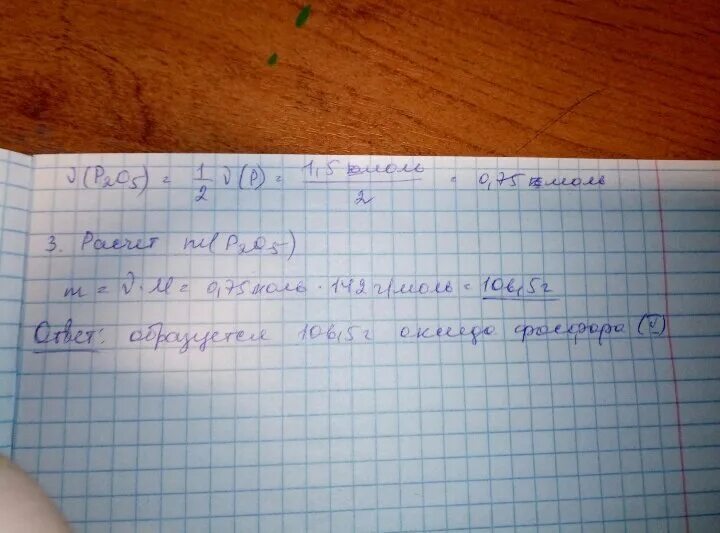 ν(P₂O₅) = 1/2 ν(P) = 1,5 моль / 2 = 0,75 моль
3. Расчет m(P₂O₅)
m = ν·M = 0,75 моль · 142 г/моль = 106,5 г
Ответ: образуется 106,5 г оксида фосфора (V)